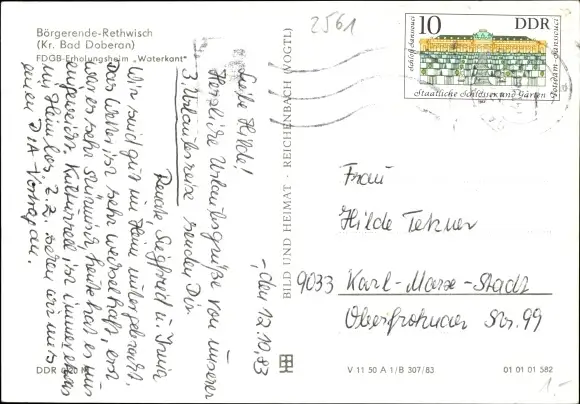 Börgerende-Rethwisch
(Kr. Bad Doberan)
FDGB-Erholungsheim „Waterkant"
2561
10 DDR
Schloß Sanssouci
Potsdam-Sanssouci
Staatliche Schlösser und Gärten
BILD UND HEIMAT · REICHENBACH (VOGTL)
, den 12.10.83
Liebe Hilde!
Herzliche Urlaubsgrüße von unserer
3. Urlaubsreise senden Dir
Renate, Siegfried u.
Wir sind gut im Heim untergebracht.
Das Wetter ist sehr wechselhaft, erst
war es sehr stürmisch, heute hat es nur
Kulturell ist immer etwas
im Heim los, z.Z. sehen wir uns
einen DIA-Vortrag an.
Frau
Hilde Tetzner
9033 Karl-Marx-Stadt
Str. 99
DDR
V 11 50 A 1/B 307/83
01 01 01 582
1.-